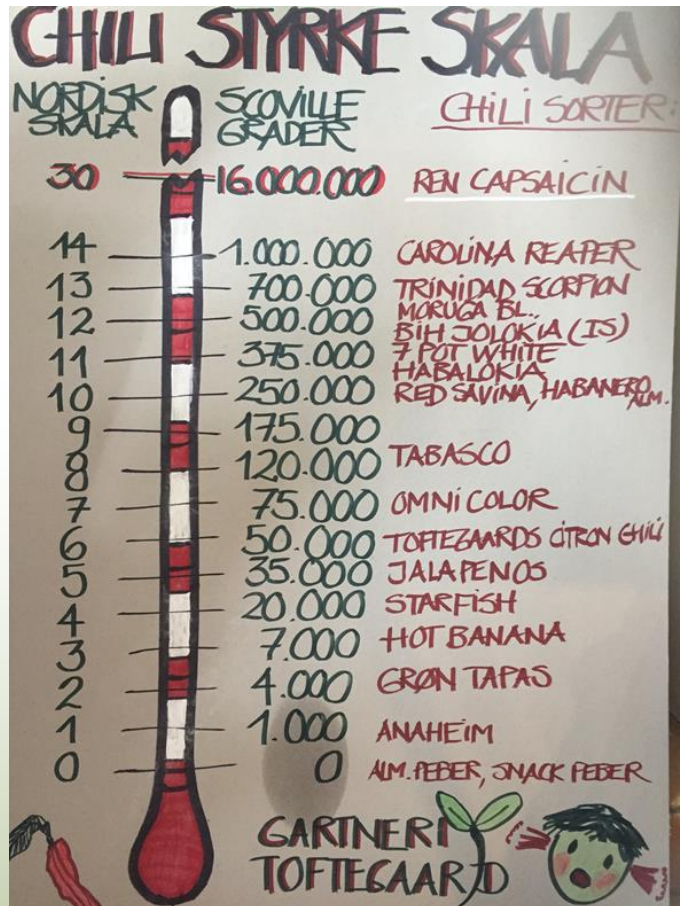 CHILI STYRKE SKALA
NORDISK SKALA
SCOVILLE GRADER
CHILI SORTER:
30 16.000.000 REN CAPSAICIN
14 1.000.000 CAROLINA REAPER
13 700.000 TRINIDAD SCORPION
MORUGA BL.
12 500.000 BIH JOLOKIA (IS)
11 375.000 7 POT WHITE
HABALOKIA
10 250.000 RED SAVINA, HABANERO ALM.
9 175.000
8 120.000 TABASCO
7 75.000 OMNICOLOR
6 50.000 TOFTEGAARDS CITRON CHILI
5 35.000 JALAPENOS
4 20.000 STARFISH
3 7.000 HOT BANANA
2 4.000 GRØN TAPAS
1 1.000 ANAHEIM
0 0 ALM. PEBER, SNACK PEBER
GARTNERI
TOFTEGAARD